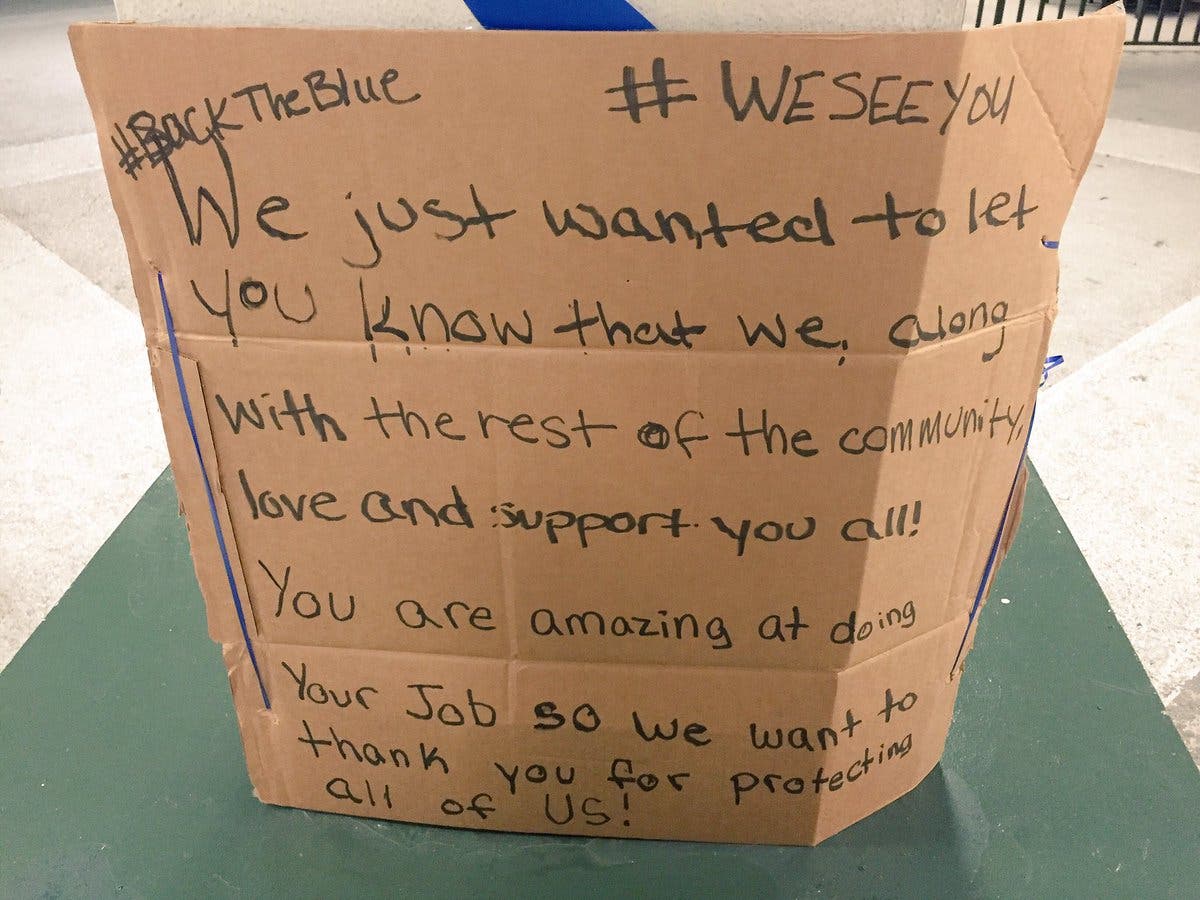 #BackTheBlue # WESEEYOU
We just wanted to let
you know that we, along
with the rest of the community,
love and support you all!
You are amazing at doing
Your Job so we want to
thank you for protecting
all of us!